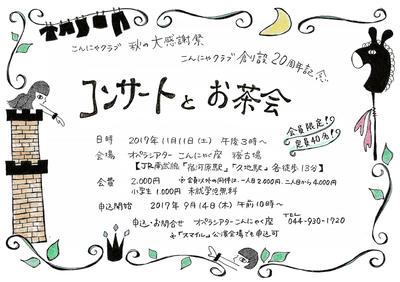 こんにゃクラブ 秋の大感謝祭
こんにゃクラブ創設20周年記念
コンサートとお茶会
会員限定!
定員40名!
日時 2017年11月11日(土) 午後3時〜
会場 オペラシアターこんにゃく座 稽古場
【JR南武線「宿河原駅」「久地駅」各徒歩13分】
会費 2,000円 ※会員以外の同伴は一人目2,000円、二人目から4,000円
小学生 1,000円 未就学児無料
申込開始 2017年9月14日(木) 午前10時〜
申込・お問合せ オペラシアターこんにゃく座 TEL 044-930-1720
※「スマイル」公演会場でも申込可